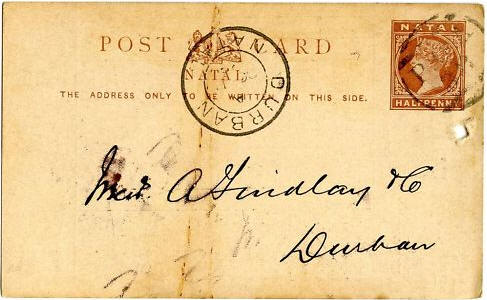 POST CARD
NATAL
THE ADDRESS ONLY TO BE WRITTEN ON THIS SIDE.
NATAL
HALFPENNY
DURBAN
NATAL
A Findlay & Co
Durban